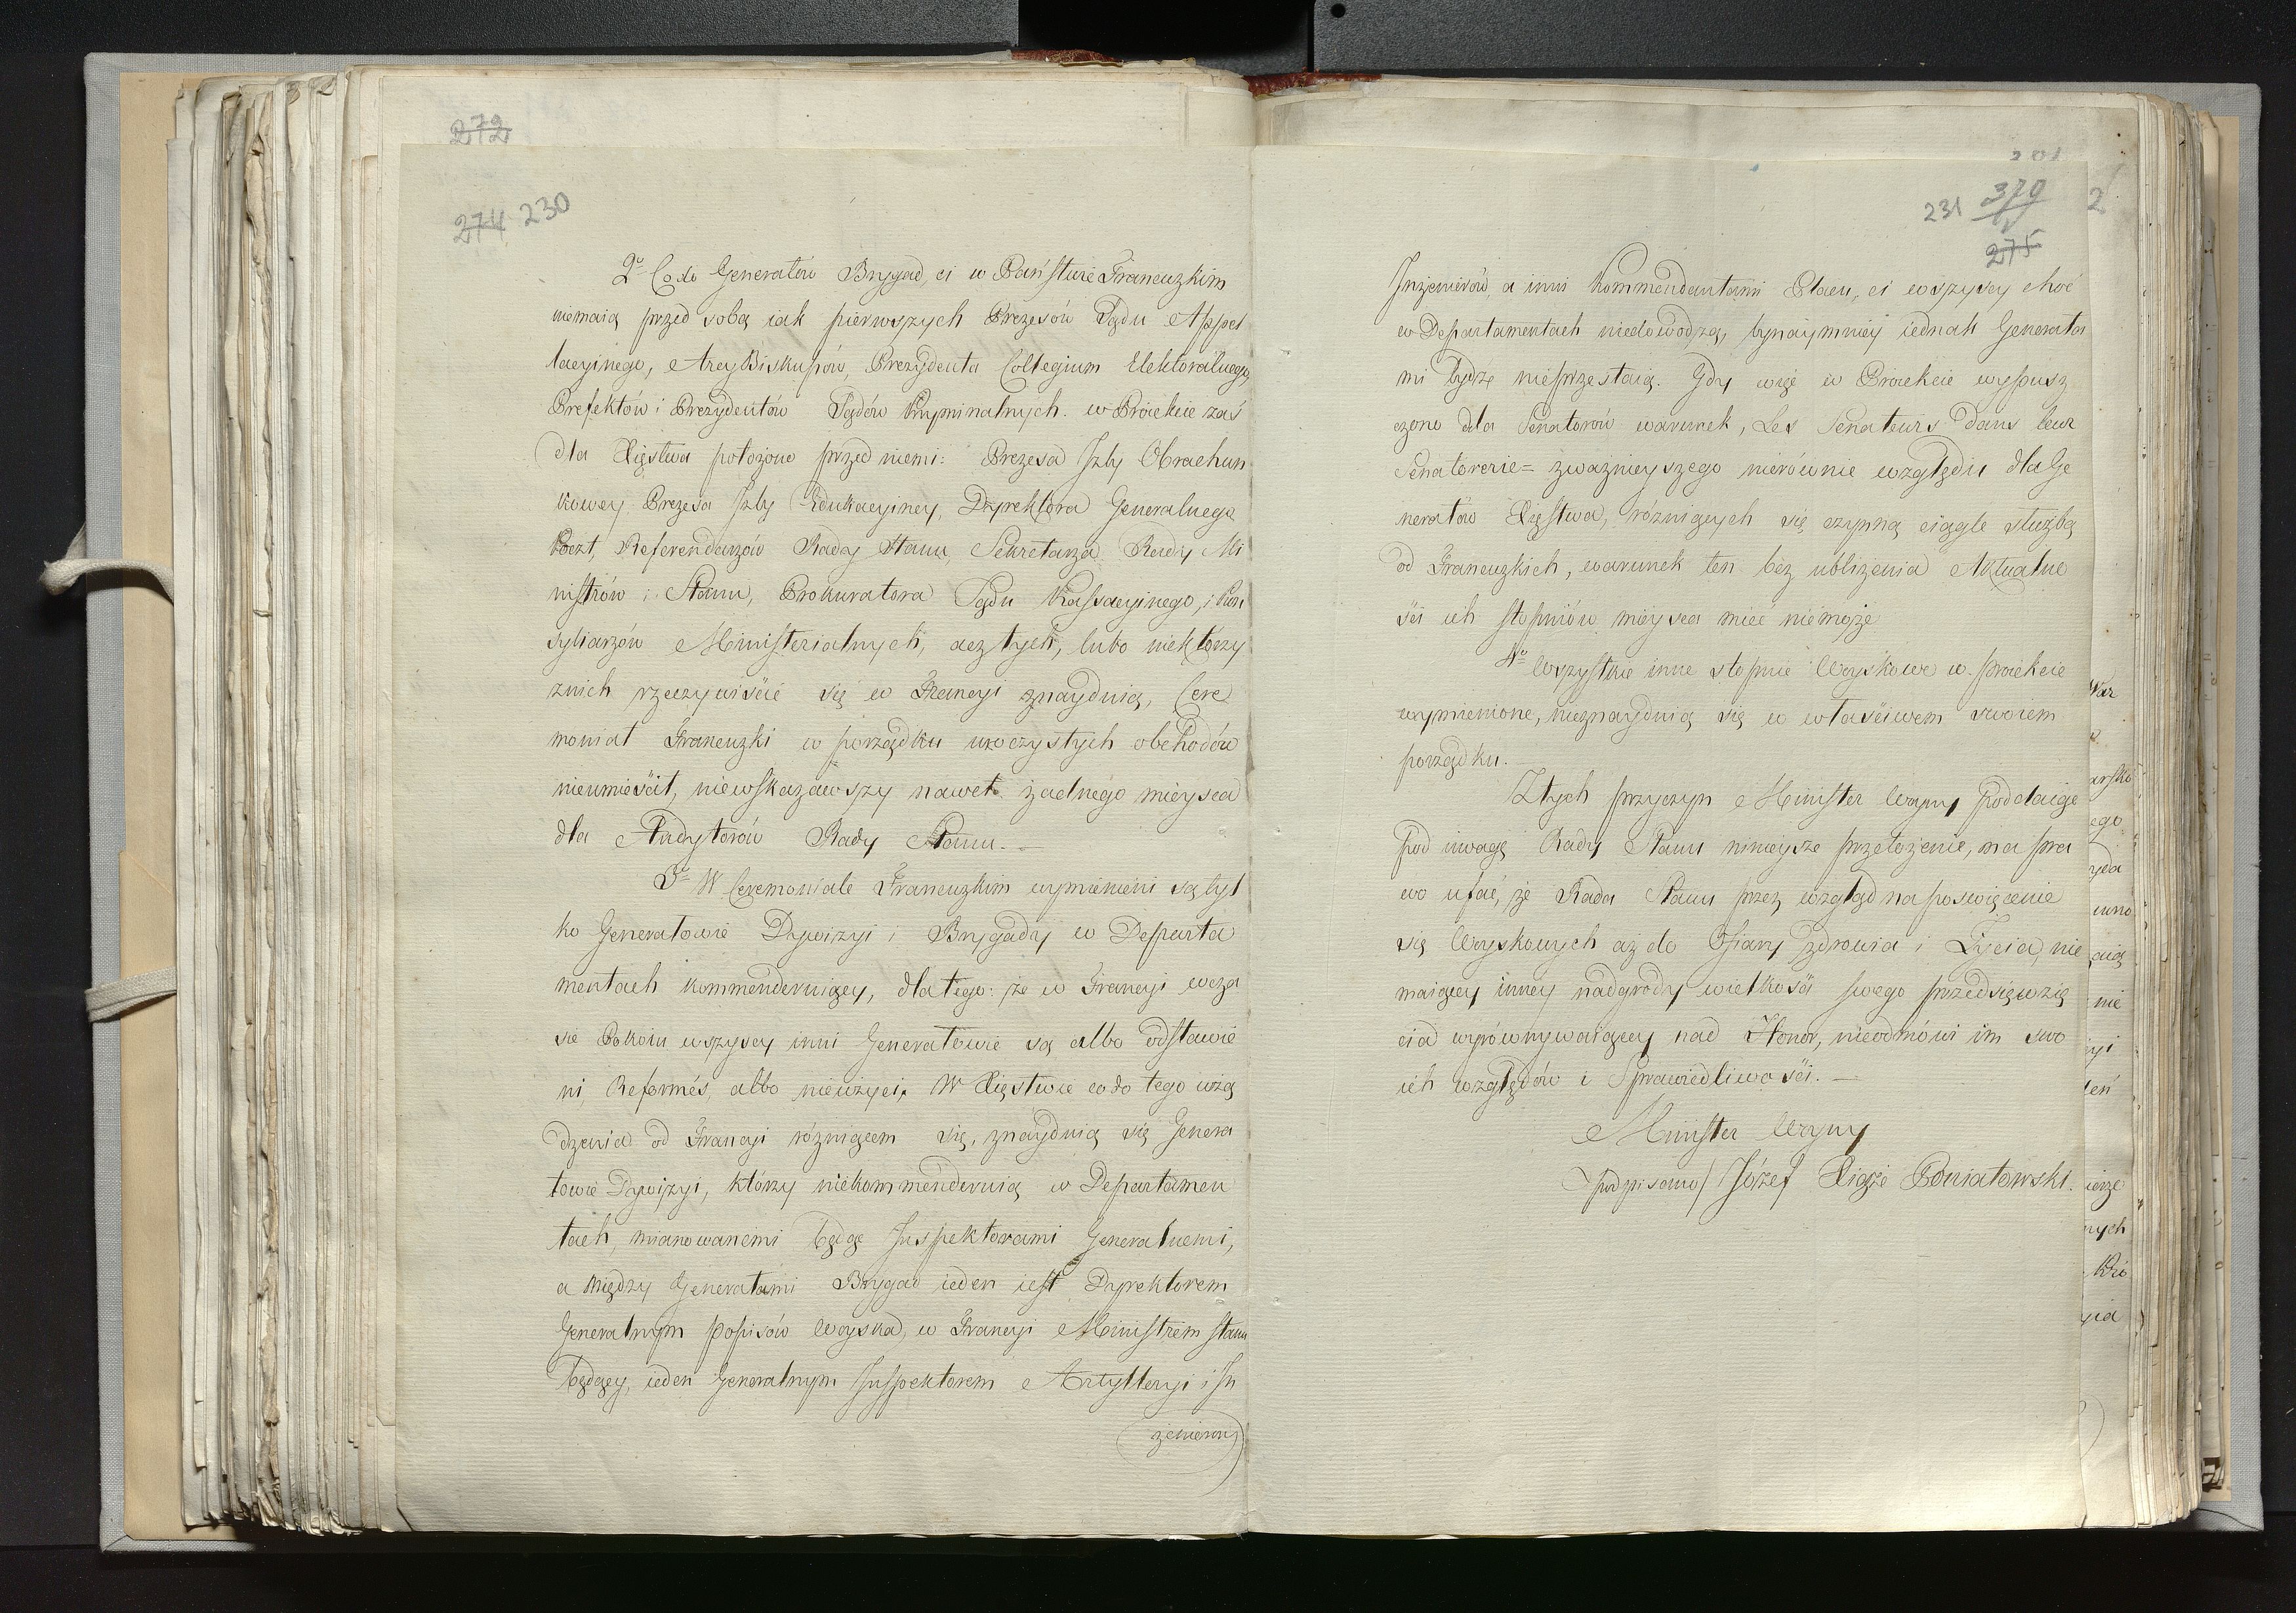 272
274 230
2º Co do Generałów Brygad, ci w Państwie Francuzkim
niemaią przed sobą iak pierwszych Prezesów Sądu Appel
lacyinego, ArcyBiskupów, Prezydenta Collegium Elektoralnego,
Prefektów i Prezydentów Sądów Kryminalnych. w Proiekcie zaś
dla Xięstwa położono przed niemi: Prezesa Izby Obrachun
kowey, Prezesa Izby Edukacyiney, Dyrektora Generalnego
Poczt, Referendarzów Rady Stanu, Sekretarza Rady Mi
nistrów i Stanu, Prokuratora Sądu Kassacyinego, i Kon
syliarzów Ministerialnych, acz tych, lubo niektórzy
znich rzeczywiście się w Francyi znayduią, Cere
moniał Francuzki w porządku uroczystych obchodów
nieumieścił, niewskazawszy nawet żadnego mieysca
dla Audytorów Rady Stanu. —
3º W Ceremoniale Francuzkim wymienieni są tyl
ko Generałowie Dywizyi i Brygady w Departa
mentach kommenderuiący, dla tego: że w Francyi wcza
sie Pokoiu wszyscy inni Generałowie są albo odstawie
ni, Reformés, albo nieużyci, W Xięstwie co do tego użą
dzenia od Francyi różniącem się, znayduią się Genera
łowie Dywizyi, którzy niekommenderuią w Departamen
tach, mianowanemi będąc Inspektorami Generalnemi,
a między Generałami Brygad ieden iest Dyrektorem
Generalnym popisów Woyska, w Francyi Ministrem stanu
będący, ieden Generalnym Inspektorem Artylleryi i In
żenierów
231 379
275
2
Inżenierów, a inni Kommendantami Placu, ci wszyscy choć
w Departamentach niedowodzą, bynaymniey iednak Generała
mi bydź nieprzestaią. Gdy więc w Proiekcie wypusz
czono dla Senatorów warunek, Les Senateurs dans leur
Senatorerie = zważnieyszego nierównie względu dla Ge
nerałów Xięstwa, różniących się czynną ciągle służbą
od Francuzkich, warunek ten bez ubliżenia Aktualno
ści ich stopniów mieysca mieć niemoże
4º Wszystkie inne stopnie Woyskowe w proiekcie
wymienione, nieznayduią się w właściwem swoiem
porządku.
Ztych przyczyn Minister Woyny poddaiąc
pod uwagę Rady Stanu ninieysze przełożenie, ma pra
wo ufać, że Rada Stanu przez wzgląd na poswięcenie
się Woyskowych aż do Ofiary zdrowia i Życia, nie
maiący inney nadgrody wielkości swego przedsięwzię
cia wyrównywaiącey nad Honor, nieodmówi im swo
ich względów i Sprawiedliwości. —
Minister Woyny
/podpisano/ Józef Xiąże Poniatowski.